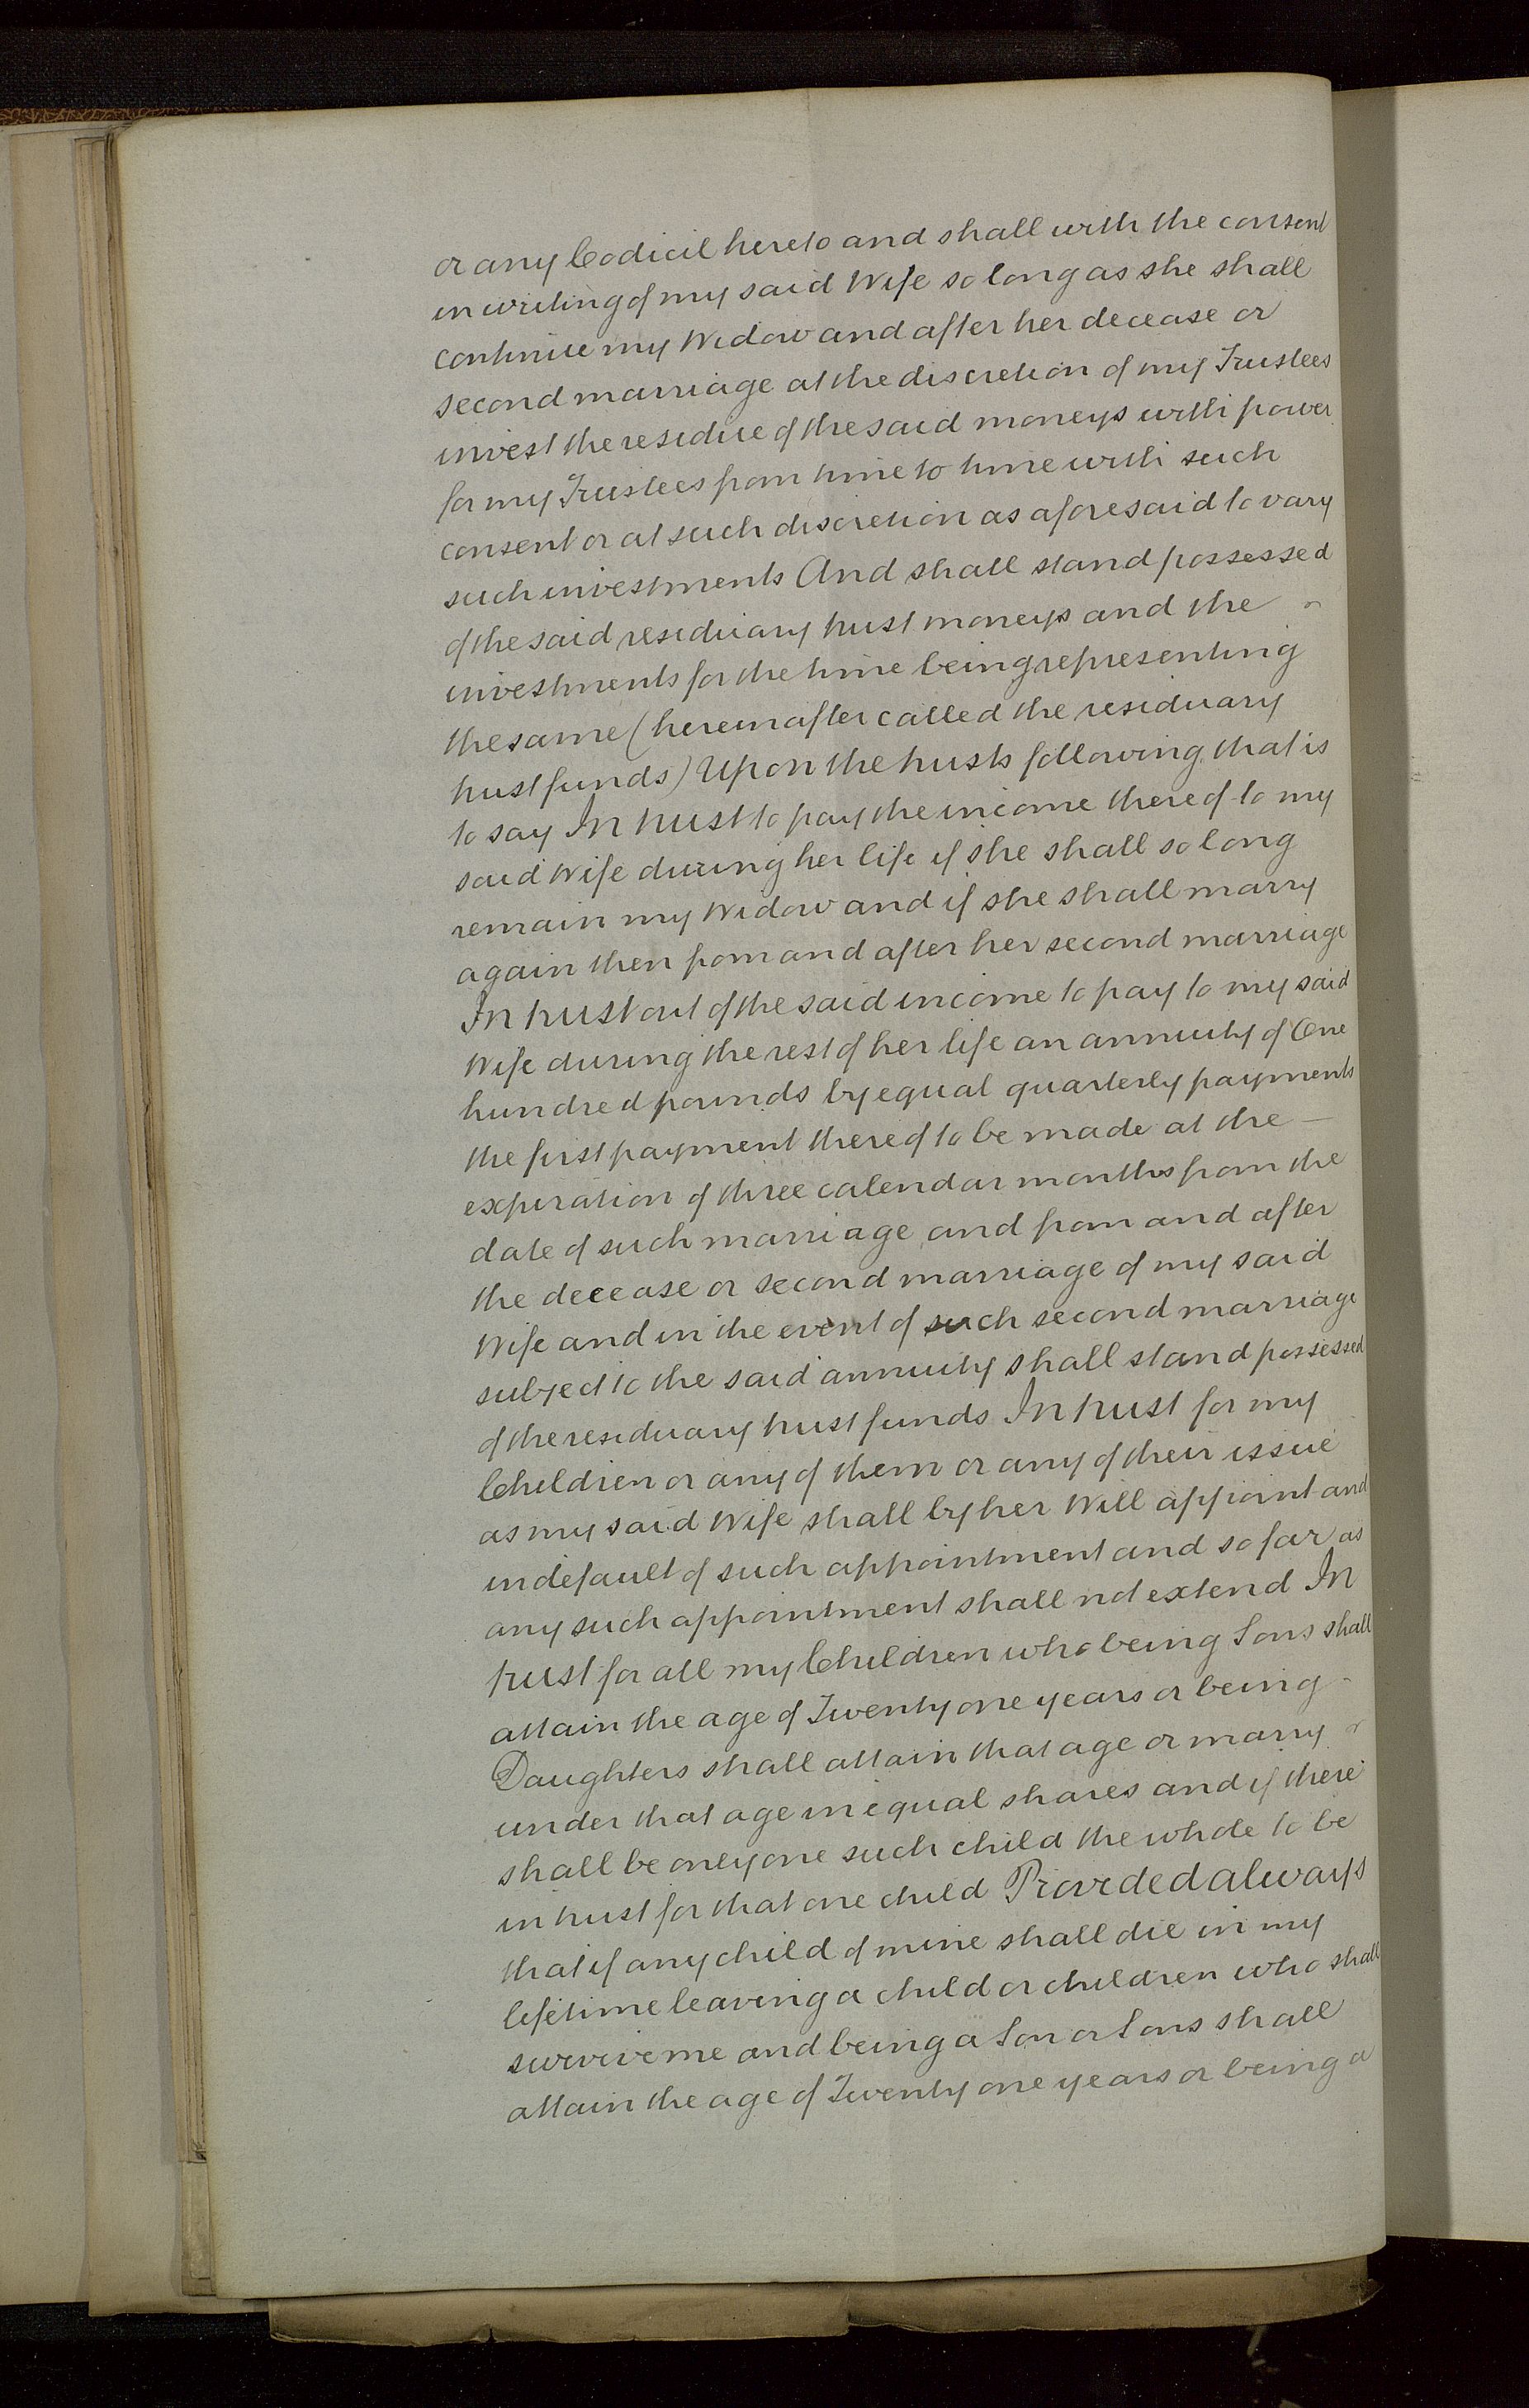 or any Codicil hereto and shall with the consent
in writing of my said Wife so long as she shall
continue my Widow and after her decease or
second marriage at the discretion of my Trustees
invest the residue of the said moneys with power
for my Trustees from time to time with such
consent or at such discretion as aforesaid to vary
such investments And shall stand possessed
of the said residuary trust moneys and the
investments for the time being representing
the same (hereinafter called the residuary
trust funds) Upon the trusts following that is
to say In trust to pay the income thereof to my
said Wife during her life if she shall so long
remain my Widow and if she shall marry
again then from and after her second marriage
In trust out of the said income to pay to my said
Wife during the rest of her life an annuity of One
hundred pounds by equal quarterly payments
the first payment thereof to be made at the —
expiration of three calendar months from the
date of such marriage and from and after
the decease or second marriage of my said
Wife and in the event of such second marriage
subject to the said annuity shall stand possessed
of the residuary trust funds In trust for my
Children or any of them or any of their issue
as my said Wife shall by her Will appoint and
in default of such appointment and so far as
any such appointment shall not extend In
trust for all my Children who being Sons shall
attain the age of Twenty one years or being
Daughters shall attain that age or marry
under that age in equal shares and if there
shall be only one such child the whole to be
in trust for that one child Provided always
that if any child of mine shall die in my
lifetime leaving a child or children who shall
survive me and being a Son or Sons shall
attain the age of Twenty one years or being a